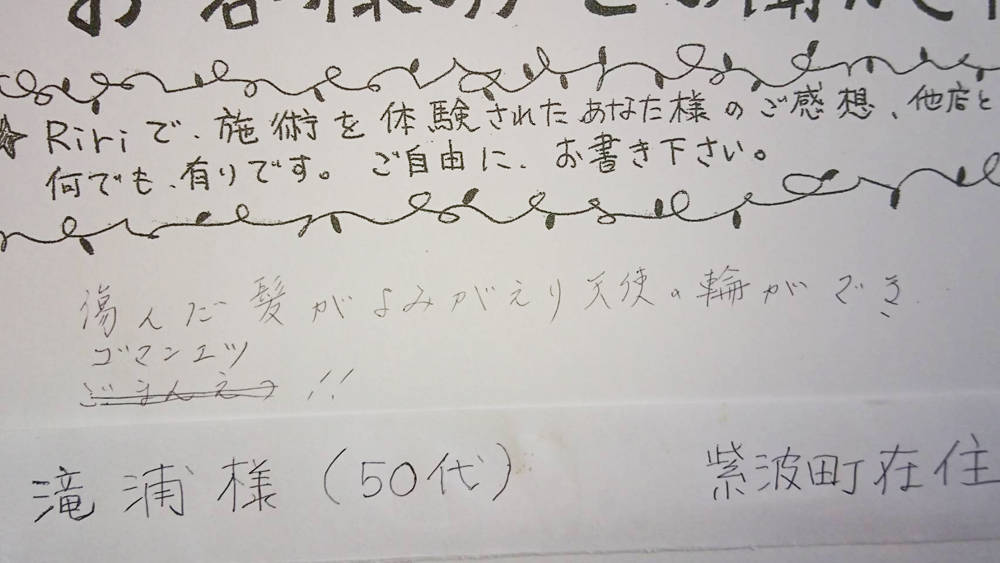 お客様の
★Ririで、施術を体験されたあなた様のご感想、他店と
何でも、有りです。ご自由に、お書き下さい。
傷んだ髪がよみがえり天使の輪ができ
ゴマンエツ
ごまんえつ !!
滝浦様(50代) 紫波町在住